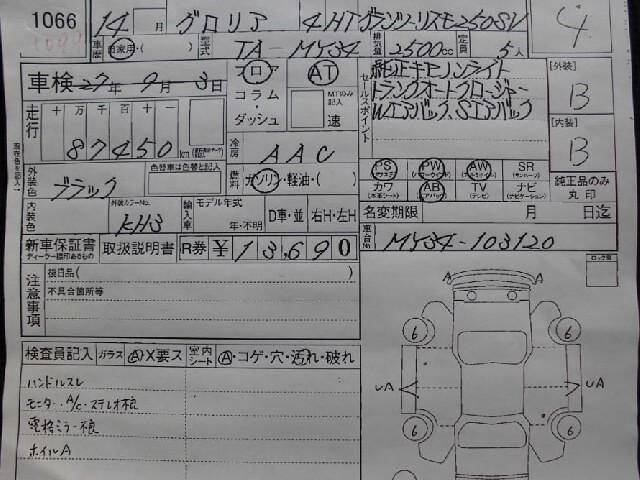 1066
14 月 グロリア 4HTグランツーリスモ250SV
4
車歴 自家用・( ) 型式 TA-MY34 排気量 2500cc 定員 5人
車検 27年 9月 3日
フロア
コラム
・
ダッシュ
AT
MTのみ記入
速
セールスポイント
純正キセノンライト
トランクオートクロージャー
WエアバックSエアバック
[外装]
B
[内装]
B
走行
十 万 千 百 十 一
87450 km
冷房 AAC
外装色 ブラック
色替車は色替と記入
燃料 ガソリン・軽油・( )
PS PW AW SR
カワ AB TV ナビ
純正品のみ
丸印
内装色
外装カラーNo.
KH3
輸入車
モデル年式
年・不明
D車・並 右H・左H
名変期限 月 日迄
新車保証書
ディーラー捺印あるもの
取扱説明書
R券 ¥13,690
車台No. MY34-103120
注意事項
後日品( )
不具合箇所等
検査員記入 ガラス A X要ス 室内シート A・コゲ・穴・汚れ・破れ
ハンドルスレ
モニター、A/C・ステレオ不良
電格ミラー不良
ホイルA
6 6
UA UA
6 6